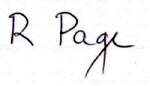 R Page